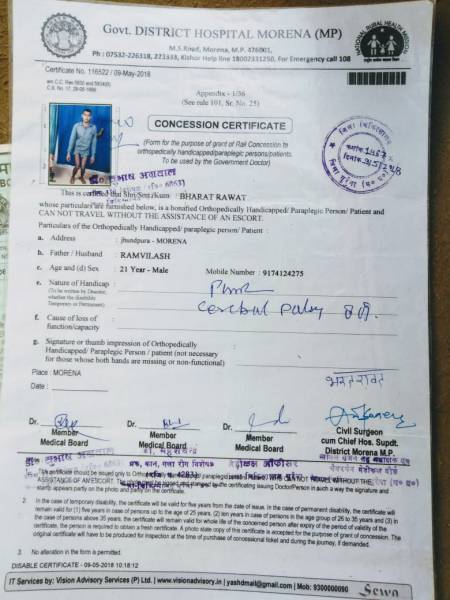 Govt. DISTRICT HOSPITAL MORENA (MP)
M.S.Road, Morena, M.P. 476001,
Ph : 07532-226318, 223333, Kishor Help line 18002331250. For Emergency call 108
NATIONAL RURAL HEALTH MISSION
Certificate No. 116522 / 09-May-2018
Appendix - 1/36
(See rule 101, Sr. No. 25)
CONCESSION CERTIFICATE
(Form for the purpose of grant of Rail Concession to
orthopedically handicapped/paraplegic persons/patients.
To be used by the Government Doctor)
This is certified that Shri/Smt./Kum BHARAT RAWAT
whose particulars are furnished below, is a bonafied Orthopedically Handicapped/ Paraplegic Person/ Patient and
CAN NOT TRAVEL WITHOUT THE ASSISTANCE OF AN ESCORT.
Particulars of the Orthopedically Handicapped/ paraplegic person/ patient :
a. Address : jhundpura - MORENA
b. Father / Husband : RAMVILASH
c. Age and (d) Sex : 21 Year - Male Mobile Number : 9174124275
e. Nature of Handicap :
(To be written by Doctor,
whether the disability
Temporary or Permanent)
Cerebral Palsy
f. Cause of loss of :
function/capacity
g. Signature or thumb impression of Orthopedically
Handicapped/ Paraplegic Person / patient (not necessary
for those whose both hands are missing or non-functional)
Place : MORENA
भरत रावत
Date :
Dr.
Dr.
Dr.
Member
Medical Board
Member
Medical Board
Member
Medical Board
Civil Surgeon
cum Chief Hos. Supdt.
District Morena M.P.
This certificate should be issued only to Orthopedically
ASSISTANCE OF AN ESCORT.
stamp appears party on the photo and party on the certificate.
2 In the case of temporary disability, the certificate will be valid for five years from the date of issue. In the case of permanent disability, the certificate will
remain valid for (1) five years in case of persons up to the age of 25 years, (2) ten years in case of persons in the age group of 26 to 35 years and (3) in
the case of persons above 35 years, the certificate will remain valid for whole life of the concerned person after expiry of the period of validity of the
certificate, the person is required to obtain a fresh certificate. A photo state copy of this certificate is accepted for the purpose of grant of concession. The
original certificate will have to be produced for inspection at the time of purchase of concessional ticket and during the journey, if demanded.
3. No alteration in the form is permitted.
DISABLE CERTIFICATE - 09-05-2018 10:18:12
IT Services by: Vision Advisory Services (P) Ltd. | www.visionadvisory.in | yashdmail@gmail.com | Mob: 9300000090
Sewa